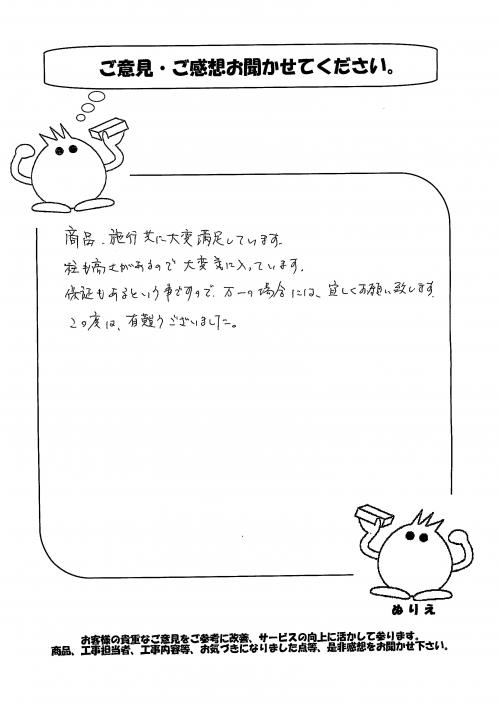 ご意見・ご感想お聞かせてください。
商品、施行共に大変満足しています。
柱も高さがあるので大変気に入っています。
保証もあるという事ですので、万一の場合には、宜しくお願い致します。
この度は、有難うございました。
ぬりえ
お客様の貴重なご意見をご参考に改善、サービスの向上に活かして参ります。
商品、工事担当者、工事内容等、お気づきになりました点等、是非感想をお聞かせ下さい。